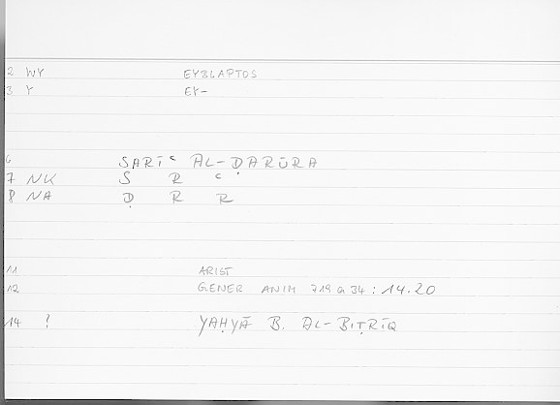 2 WY EYBLAPTOS
3 Y EY-
6 SARĪʿ AL-ḌARŪRA
7 NK S R ʿ
8 NA Ḍ R R
11 ARIST
12 GENER ANIM 719 a 34 : 14.20
14 ! YAḤYĀ B. AL-BIṬRĪQ